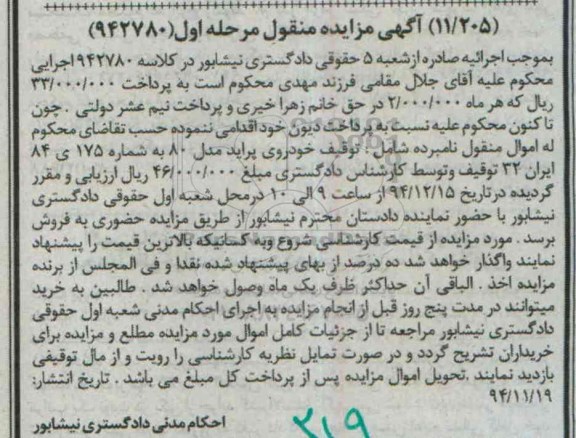 (۱۱/۲۰۵) آگهی مزایده منقول مرحله اول(۹۴۲۷۸۰)
بموجب اجرائیه صادره ازشعبه ۵ حقوقی دادگستری نیشابور در کلاسه ۹۴۲۷۸۰ اجرایی
محکوم علیه آقای جلال مقامی فرزند مهدی محکوم است به پرداخت ۳۳/۰۰۰/۰۰۰
ریال که هر ماه ۲/۰۰۰/۰۰۰ در حق خانم زهرا خیری و پرداخت نیم عشر دولتی . چون
تاکنون محکوم علیه نسبت به پرداخت دیون خود اقدامی ننموده حسب تقاضای محکوم
له اموال منقول نامبرده شامل : توقیف خودروی پراید مدل ۸۰ به شماره ۱۷۵ ی ۸۴
ایران ۳۲ توقیف وتوسط کارشناس دادگستری مبلغ ۴۶/۰۰۰/۰۰۰ ریال ارزیابی و مقرر
گردیده درتاریخ ۹۴/۱۲/۱۵ از ساعت ۹ الی ۱۰ درمحل شعبه اول حقوقی دادگستری
نیشابور با حضور نماینده دادستان محترم نیشابور از طریق مزایده حضوری به فروش
برسد . مورد مزایده از قیمت کارشناسی شروع وبه کسانیکه بالاترین قیمت را پیشنهاد
نمایند واگذار خواهد شد ده درصد از بهای پیشنهاد شده نقدا و فی المجلس از برنده
مزایده اخذ . الباقی آن حداکثر ظرف یک ماه وصول خواهد شد . طالبین به خرید
میتوانند در مدت پنج روز قبل از انجام مزایده به اجرای احکام مدنی شعبه اول حقوقی
دادگستری نیشابور مراجعه تا از جزئیات کامل اموال مورد مزایده مطلع و مزایده برای
خریداران تشریح گردد و در صورت تمایل نظریه کارشناسی را رویت و از مال توقیفی
بازدید نمایند .تحویل اموال مزایده پس از پرداخت کل مبلغ می باشد . تاریخ انتشار:
۹۴/۱۱/۱۹
احکام مدنی دادگستری نیشابور
۲۱۹